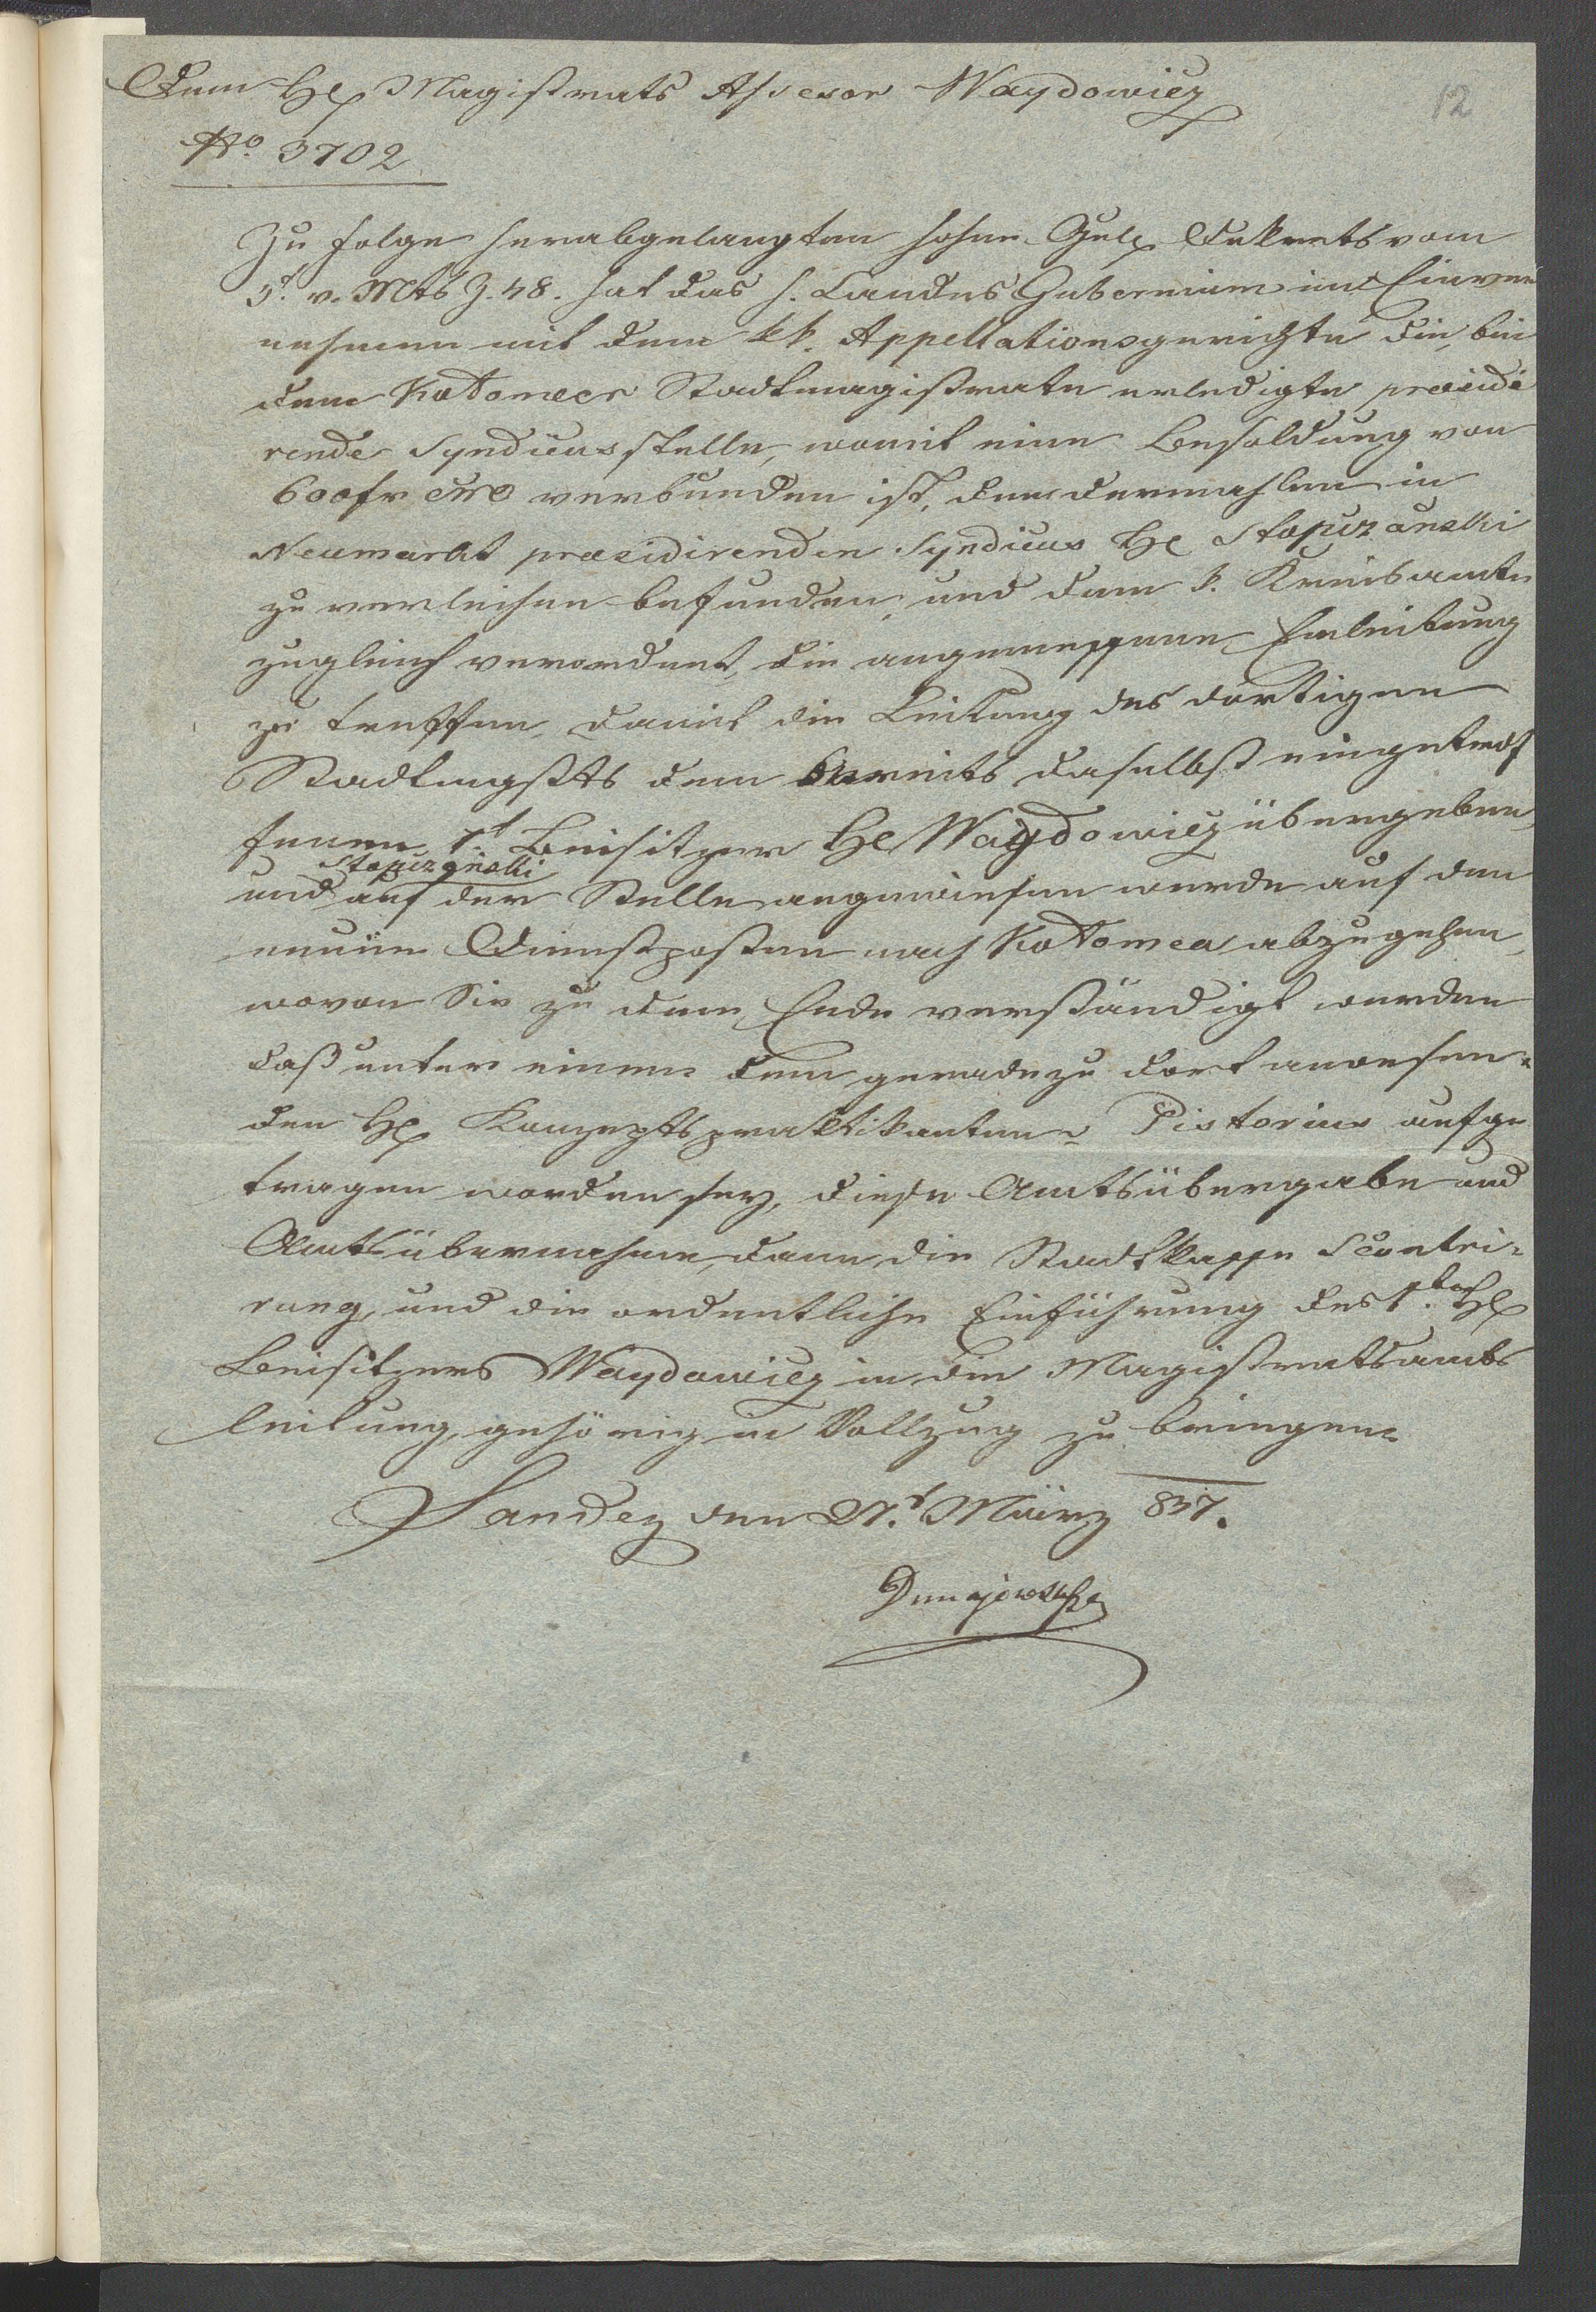 Dem H. Magistrats Assessor Waydowicz
12
No. 3702
Zu Folge herabgelangten hohen Gub. Dekrets vom
3t. v. Mts Z. 48. hat das h. Landes Gubernium im Einver
nehmen mit dem kk. Appellationsgerichte die, bei
dem Kołomeer Stadtmagistrate erledigte präsidi
rende Syndicusstelle, womit eine Besoldung von
600 fr verbunden ist, dem dermahlen in
Neumarkt praesidirenden Syndicus H. Stopczański
zu verleihen befunden, und dem k. Kreisamte
zugleich verordnet, die angemessene Einleitung
zu treffen, damit die Leitung des dortigen
Stadtmgsts dem bereits daselbst eingetrof
fenen 1t. Beisitzer H. Waydowicz übergeben,
Stopczański
und auf der Stelle angewiesen werde auf den
neuen Dienstposten nach Kołomea abzugehen,
wovon Sie zu dem Ende verständigt werden
daß unter einem dem geradezu dort anwesen-
den H. Konzeptspraktikanten Pistorius aufge
tragen worden sey, diese Amtsübergabe und
Amtsübernahme, dann die Stadtkasse Scontri-
rung, und die ordentliche Einführung des 1ten H.
Beisitzers Waydowicz in die Magistratsamts
leitung, gehörig in Vollzug zu bringen.
Sandez den 27t. März 837.